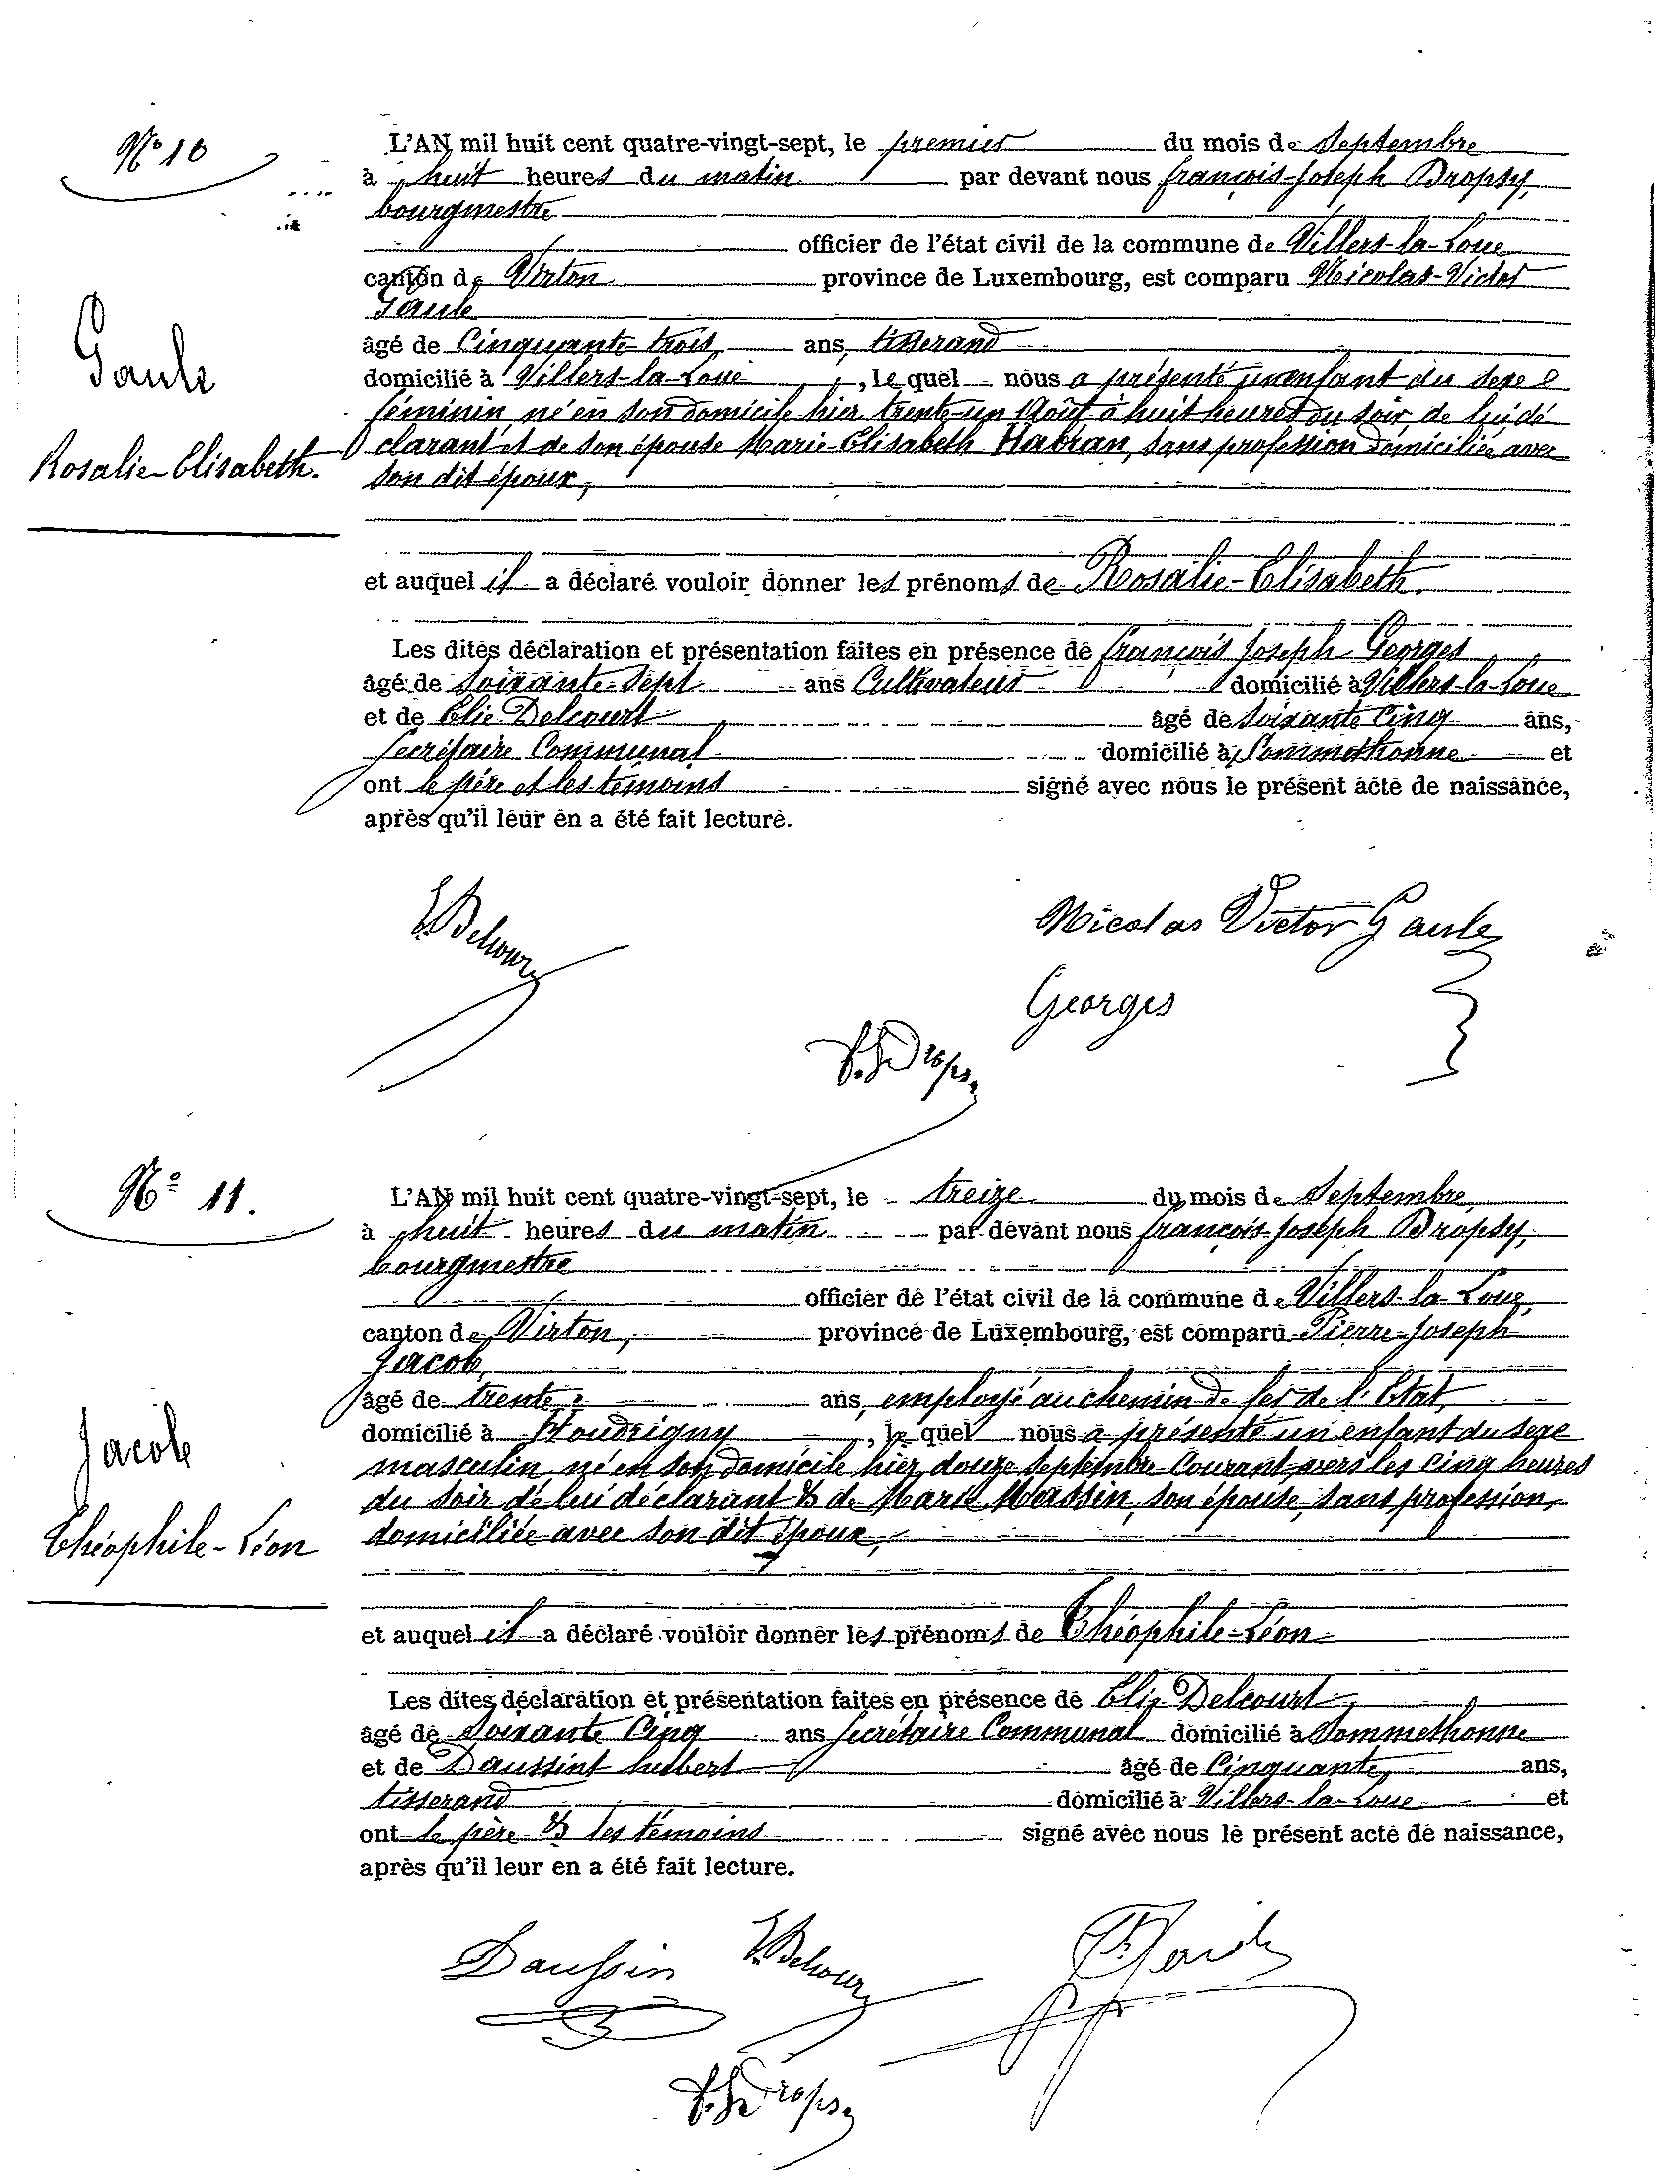 N° 10
L'AN mil huit cent quatre-vingt-sept, le premier du mois de Septembre
à huit heures du matin par devant nous françois-Joseph Dropsy,
bourgmestre
officier de l'état civil de la commune de Villers-la-Loue
canton de Virton province de Luxembourg, est comparu Nicolas-Victor
Gaule
âgé de Cinquante trois ans, tisserand
domicilié à Villers-la-Loue, le quel nous a présenté un enfant du sexe
féminin né en son domicile hier trente-un Août à huit heures du soir, de lui dé
clarant et de son épouse Marie-Elisabeth Habran, sans profession domiciliée avec
son dit époux,
Gaule
Rosalie-Elisabeth.
et auquel il a déclaré vouloir donner les prénoms de Rosalie-Elisabeth.
Les dites déclaration et présentation faites en présence de françois Joseph Georges
âgé de Soixante-Sept ans Cultivateur domicilié à Villers-la-Loue
et de Elie Delcourt âgé de soixante Cinq ans,
Secrétaire Communal domicilié à Sommethonne et
ont le père et les témoins signé avec nous le présent acte de naissance,
après qu'il leur en a été fait lecture.
E. Delcourt
Nicolas Victor Gaule
Georges
F. J. Dropsy
N° 11.
L'AN mil huit cent quatre-vingt-sept, le treize du mois de Septembre
à huit heures du matin par devant nous françois-Joseph Dropsy,
bourgmestre
officier de l'état civil de la commune de Villers-la-Loue,
canton de Virton, province de Luxembourg, est comparu Pierre-Joseph
Jacob,
âgé de trente ans, employé au chemin de fer de l'Etat,
domicilié à Houdrigny, le quel nous a présenté un enfant du sexe
masculin né en son domicile hier douze Septembre Courant vers les cinq heures
du soir de lui déclarant & de Marie Massin, son épouse, sans profession,
domiciliée avec son dit époux,
Jacob
Théophile-Léon
et auquel il a déclaré vouloir donner les prénoms de Théophile-Léon
Les dites déclaration et présentation faites en présence de Elie Delcourt,
âgé de Soixante Cinq ans Secrétaire Communal domicilié à Sommethonne
et de Daussint hubert âgé de Cinquante ans,
tisserand domicilié à Villers-la-Loue et
ont le père & les témoins signé avec nous le présent acte de naissance,
après qu'il leur en a été fait lecture.
Daussin
E. Delcourt
F. J. Dropsy